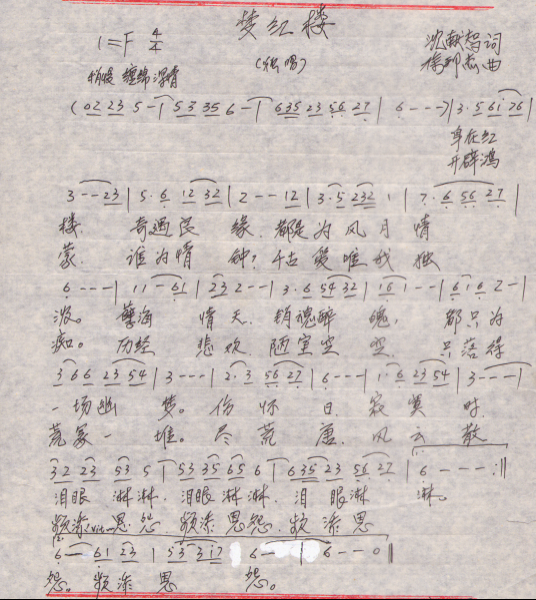 梦红楼
1=F 4/4
(独唱)
沈献智词
曲
稍慢 缠绵 深情
(02 23 5 - | 53 35 6 - | 635 23 56 27 | 6 - - -) | 3·5 61 76 |
幸在红
开辟鸿
3 - - 23 | 5·6 12 32 | 2 - - 12 | 3·5 232 1 | 7·6 56 27 |
楼。 奇遇良 缘。都是为风月情
蒙。 谁为情 钟？千古爱唯我独
6 - - - | 11 - 61 | 23 2 - - | 3·6 54 32 | 16 1 - - | 616 2 - |
浓。 孽海 情天。销魂醉 魄， 都只为
痴。 历经 悲欢 随室空 空。 只落得
3 66 23 54 | 3 - - - | 2·3 56 27 | 6 - - - | 1·6 23 54 | 3 - - - |
一场幽 梦。伤怀 日。寂寞 时。
荒冢一 堆。尽荒 唐。风云 散
32 23 53 5 | 53 35 65 6 | 635 23 56 27 | 6 - - - :||
泪眼 淋淋。泪眼淋淋。泪 眼淋 淋。
频添 恩怨 频添恩怨。频 添 恩
6 - 61 23 | 53 317 | 6 - | 6 - - 0 ||
怨。频添 恩 怨。